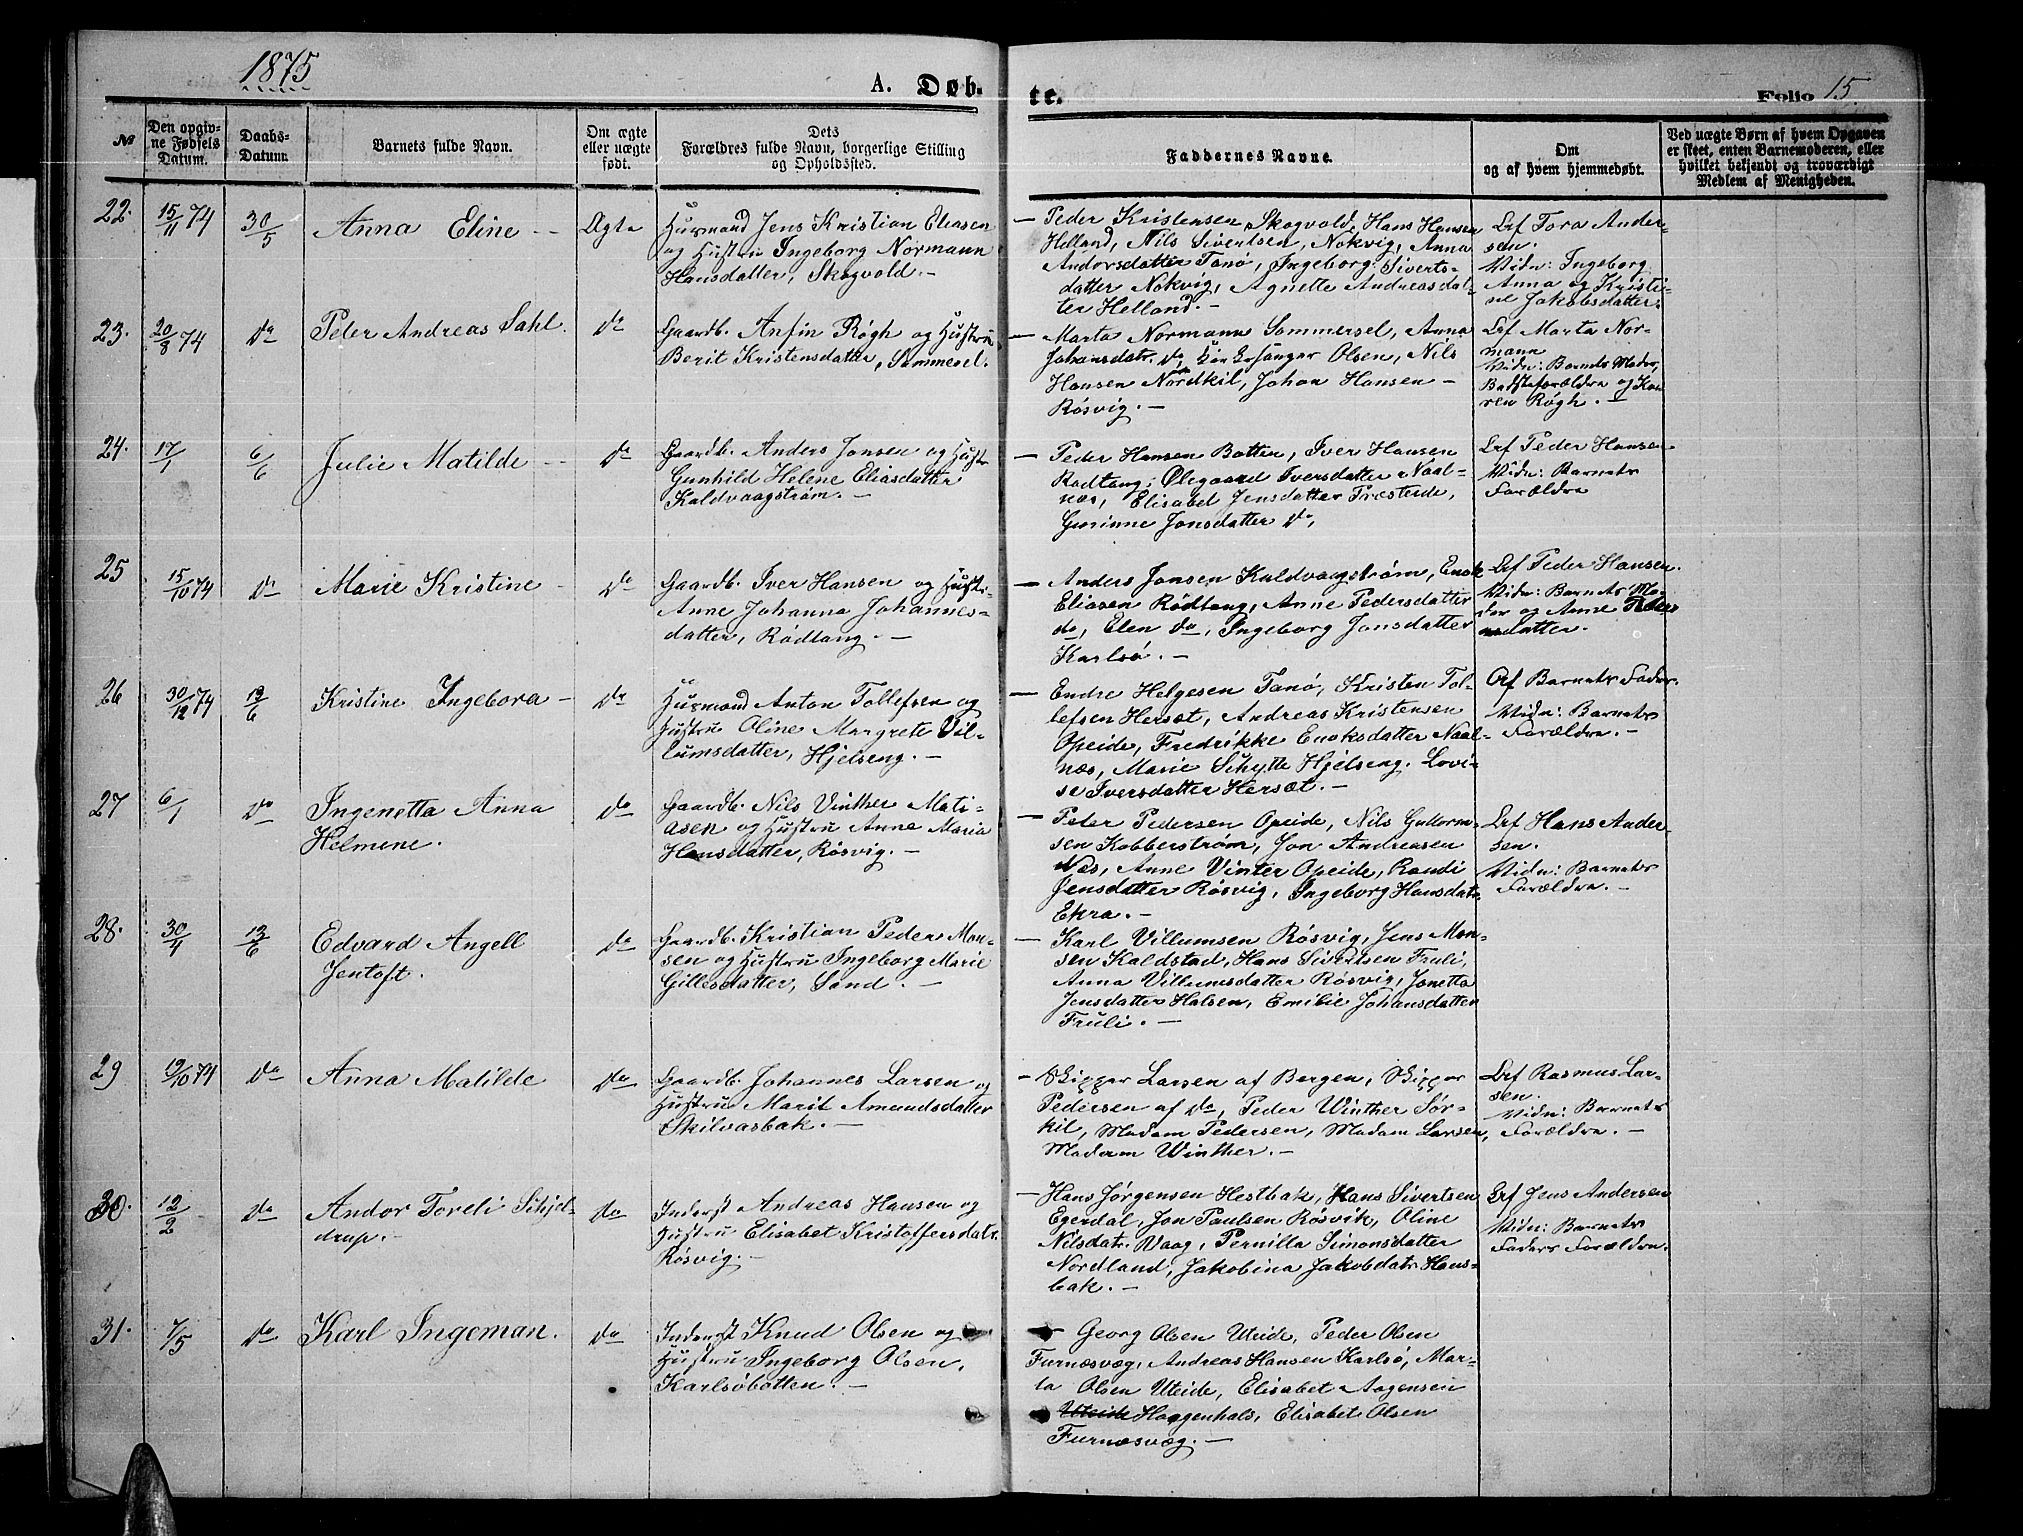 1875
A. Døb-
te.
Folio 15.
№
Den opgiv-
ne Fødsels
Datum.
Daabs-
Datum.
Barnets fulde Navn.
Om ægte
eller uægte
født.
Dets
Forældres fulde Navn, borgerlige Stilling
og Opholdssted.
Faddernes Navne.
Om
og af hvem hjemmedøbt.
Ved uægte Børn af hvem Opgaven
er skeet, enten Barnemoderen, eller
hvilket bekjendt og troværdigt
Medlem af Menigheden.
22. 15/11 74 30/5 Anna Eline Ægte
Husmand Jens Kristian Eliasen
og Hustru Ingeborg Normann
Hansdatter, Skogvold.
Peder Kristensen Skogvold, Hans Hansen
Helland, Nils Sivertsen, Nokvig, Anna
Andorsdatter Tanø, Ingeborg Siverts-
datter Nokvig, Agnette Andreasdat-
ter Helland.
Lrf Tora Ander-
sen.
Vidn: Ingeborg
Anna og Kristi-
ne Jakobsdatter.
23. 20/8 74 do Peter Andreas Dahl. do
Gaardb. Anfin Røgh og Hustru
Berit Kristensdatter, Sommersel.
Marta Normann Sommersel, Anna
Johansdatr. do, Olsen, Nils
Hansen Nordkil, Johan Hansen
Røsvig.
Lrf Marta Nor-
mann
Vidn: Barnets Moder,
Bedsteforældre og Ka-
ren Røgh.
24. 17/1 6/6 Julie Matilde do
Gaardb. Anders Jonsen og Hustr
Gunhild Helene Eliasdatter
Kaldvaagstrøm.
Peder Hansen Botten, Iver Hansen
Rødtang, Olegaard Iversdatter Naal-
næs, Elisabet Jensdatter Præsteide,
Gurinne Jonsdatter do,
Lrf Peder Hansen
Vidn: Barnets
Forældre
25 15/10 74 do Marie Kristine do
Gaardb. Iver Hansen og Hustr.
Anne Johanna Johannes-
datter, Rødtang.
Anders Jonsen Kaldvaagstrøm, Enok
Eliasen Rødtang, Anne Pedersdatter
do, Elen do, Ingeborg Jonsdatter
Karlsø.
Lrf Peder Hansen.
Vidn: Barnets Mo-
der og Anne Peder
sdatter.
26 30/12 74 13/6 Kristine Ingebora do
Husmand Anton Tollefsen og
Hustru Oline Margrete Vil-
lumsdatter, Hjelseng.
Endre Helgesen Tanø, Kristen Tol-
lefsen Hersæt, Andreas Kristensen
Opeide, Fredrikke Enoksdatter Naal-
næs, Marie Schytte Hjelseng. Lovi-
se Iversdatter Hersæt.
Lrf Barnets Fader.
Vidn: Barnets
Forældre.
27 6/1 do Ingenetta Anna
Helmine. do
Gaardb. Nils Vinther Mati-
asen og Hustru Anne Maria
Hansdatter, Røsvig.
Peter Pedersen Opeide, Nils Guttorm-
sen Kobberstrøm, Jon Andreasen
Næs, Anne Vinter Opeide, Randi
Jensdatter Røsvig, Ingeborg Hansdatr.
Ekra.
Lrf Hans Ander-
sen.
Vidn: Barnets
Forældre.
28. 30/4 13/6 Edvard Angell
Jentoft. do
Gaardb. Kristian Peder Mon-
sen og Hustru Ingeborg Marie
Gillesdatter, Sand.
Karl Villumsen Røsvig, Jens Mon-
sen Kaldstad, Hans Sivertsen Fruli,
Anna Villumsdatter Røsvig, Jonetta
Jensdatter Halsen, Emilie Johansdatter
Fruli.
29 19/10 74 do Anna Matilde do
Gaardb. Johannes Larsen og
Hustru Marit Amundsdatter
Skilvasbak.
Skipper Larsen af Bergen, Skipper
Pedersen af do, Peder Winther Sør-
kil, Madam Pedersen, Madam Larsen,
Madam Winther.
Lrf Rasmus Lar-
sen.
Vidn: Barnets
Forældre.
30. 12/2 do Andor Toreli Schjel-
drup. do
Inderst Andreas Hansen og
Hustru Elisabet Kristoffersdatr.
Røsvig.
Hans Jørgensen Hestbak, Hans Sivertsen
Egerdal, Jon Paulsen Røsvik, Oline
Nilsdatr. Vaag, Pernilla Simonsdatter
Nordland, Jakobina Jakobdatr Hans-
bak.
Lrf Jens Andersen
Vidn: Barnets
Faders Forældre.
31. 7/5 do Karl Ingeman. do
Inderst Knud Olsen og
Hustru Ingeborg Olsen,
Karlsøbotten.
Georg Olsen Uteide, Peder Olsen
Furnæsvæg, Andreas Hansen Karlsø, Mar-
ta Olsen Uteide, Elisabet Aagensen
Uteide Haggenhals, Elisabet Olsen
Furnæsvæg.